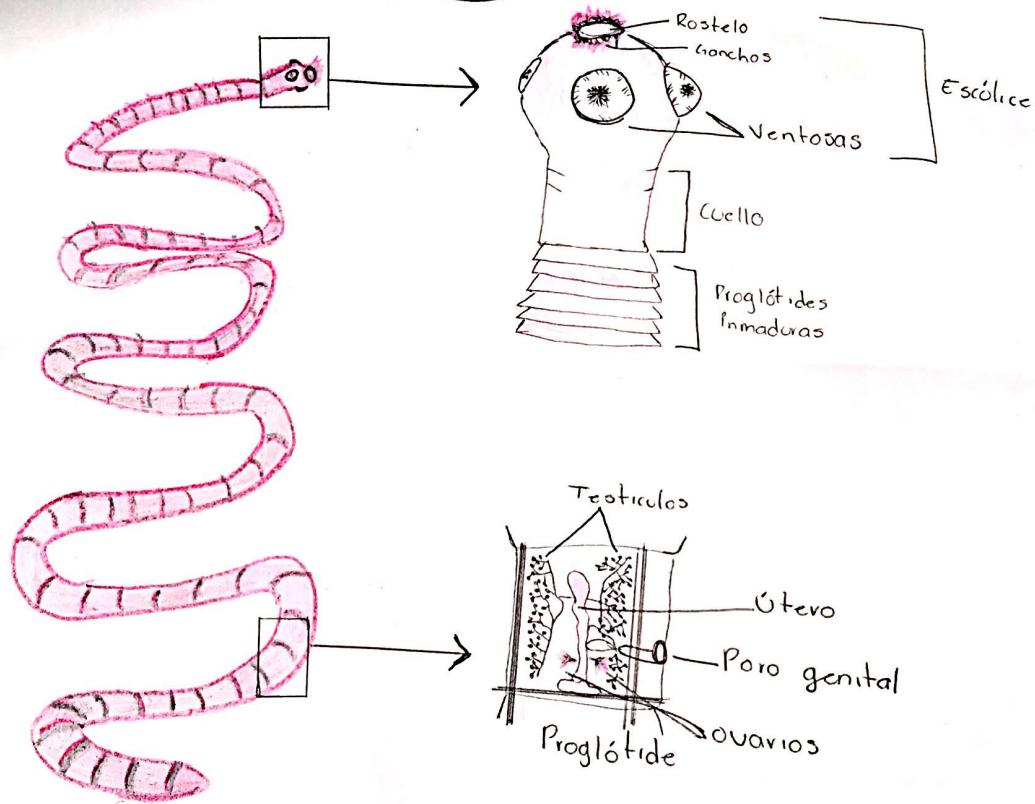 Rostelo
Ganchos
Escólice
Ventosas
Cuello
Proglótides
inmaduras
Testiculos
Útero
Poro genital
ovarios
Proglótide